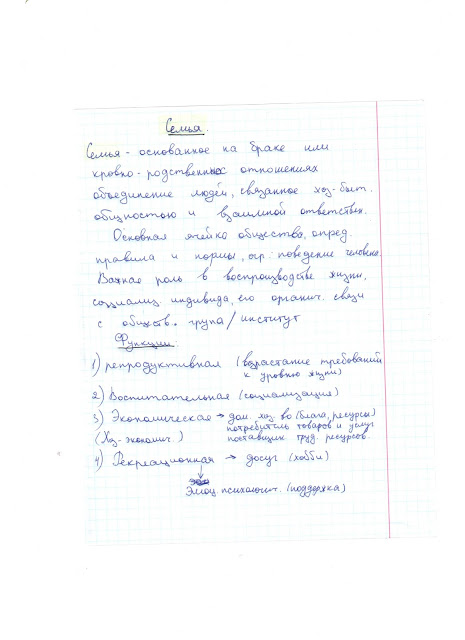 Семья.
Семья - основанное на браке или
кровно-родственных отношениях
объединение людей, связанное хоз-быт.
общностью и взаимной ответствен.
Основная ячейка общества, опред.
правила и нормы, огр. поведение человека.
Важная роль в воспроизводстве жизни,
социализ. индивида, его органич. связи
с обществ. група/институт
Функции:
1) репродуктивная (возрастание требований
к уровню жизни)
2) Воспитательная (социализация)
3) Экономическая → дом. хоз-во (блага, ресурсы)
потребитель товаров и услуг
(Хоз-эконом.) поставщик труд. ресурсов.
4) Рекреационная → досуг (хобби)
↓
Эмоц психологич. (поддержка)